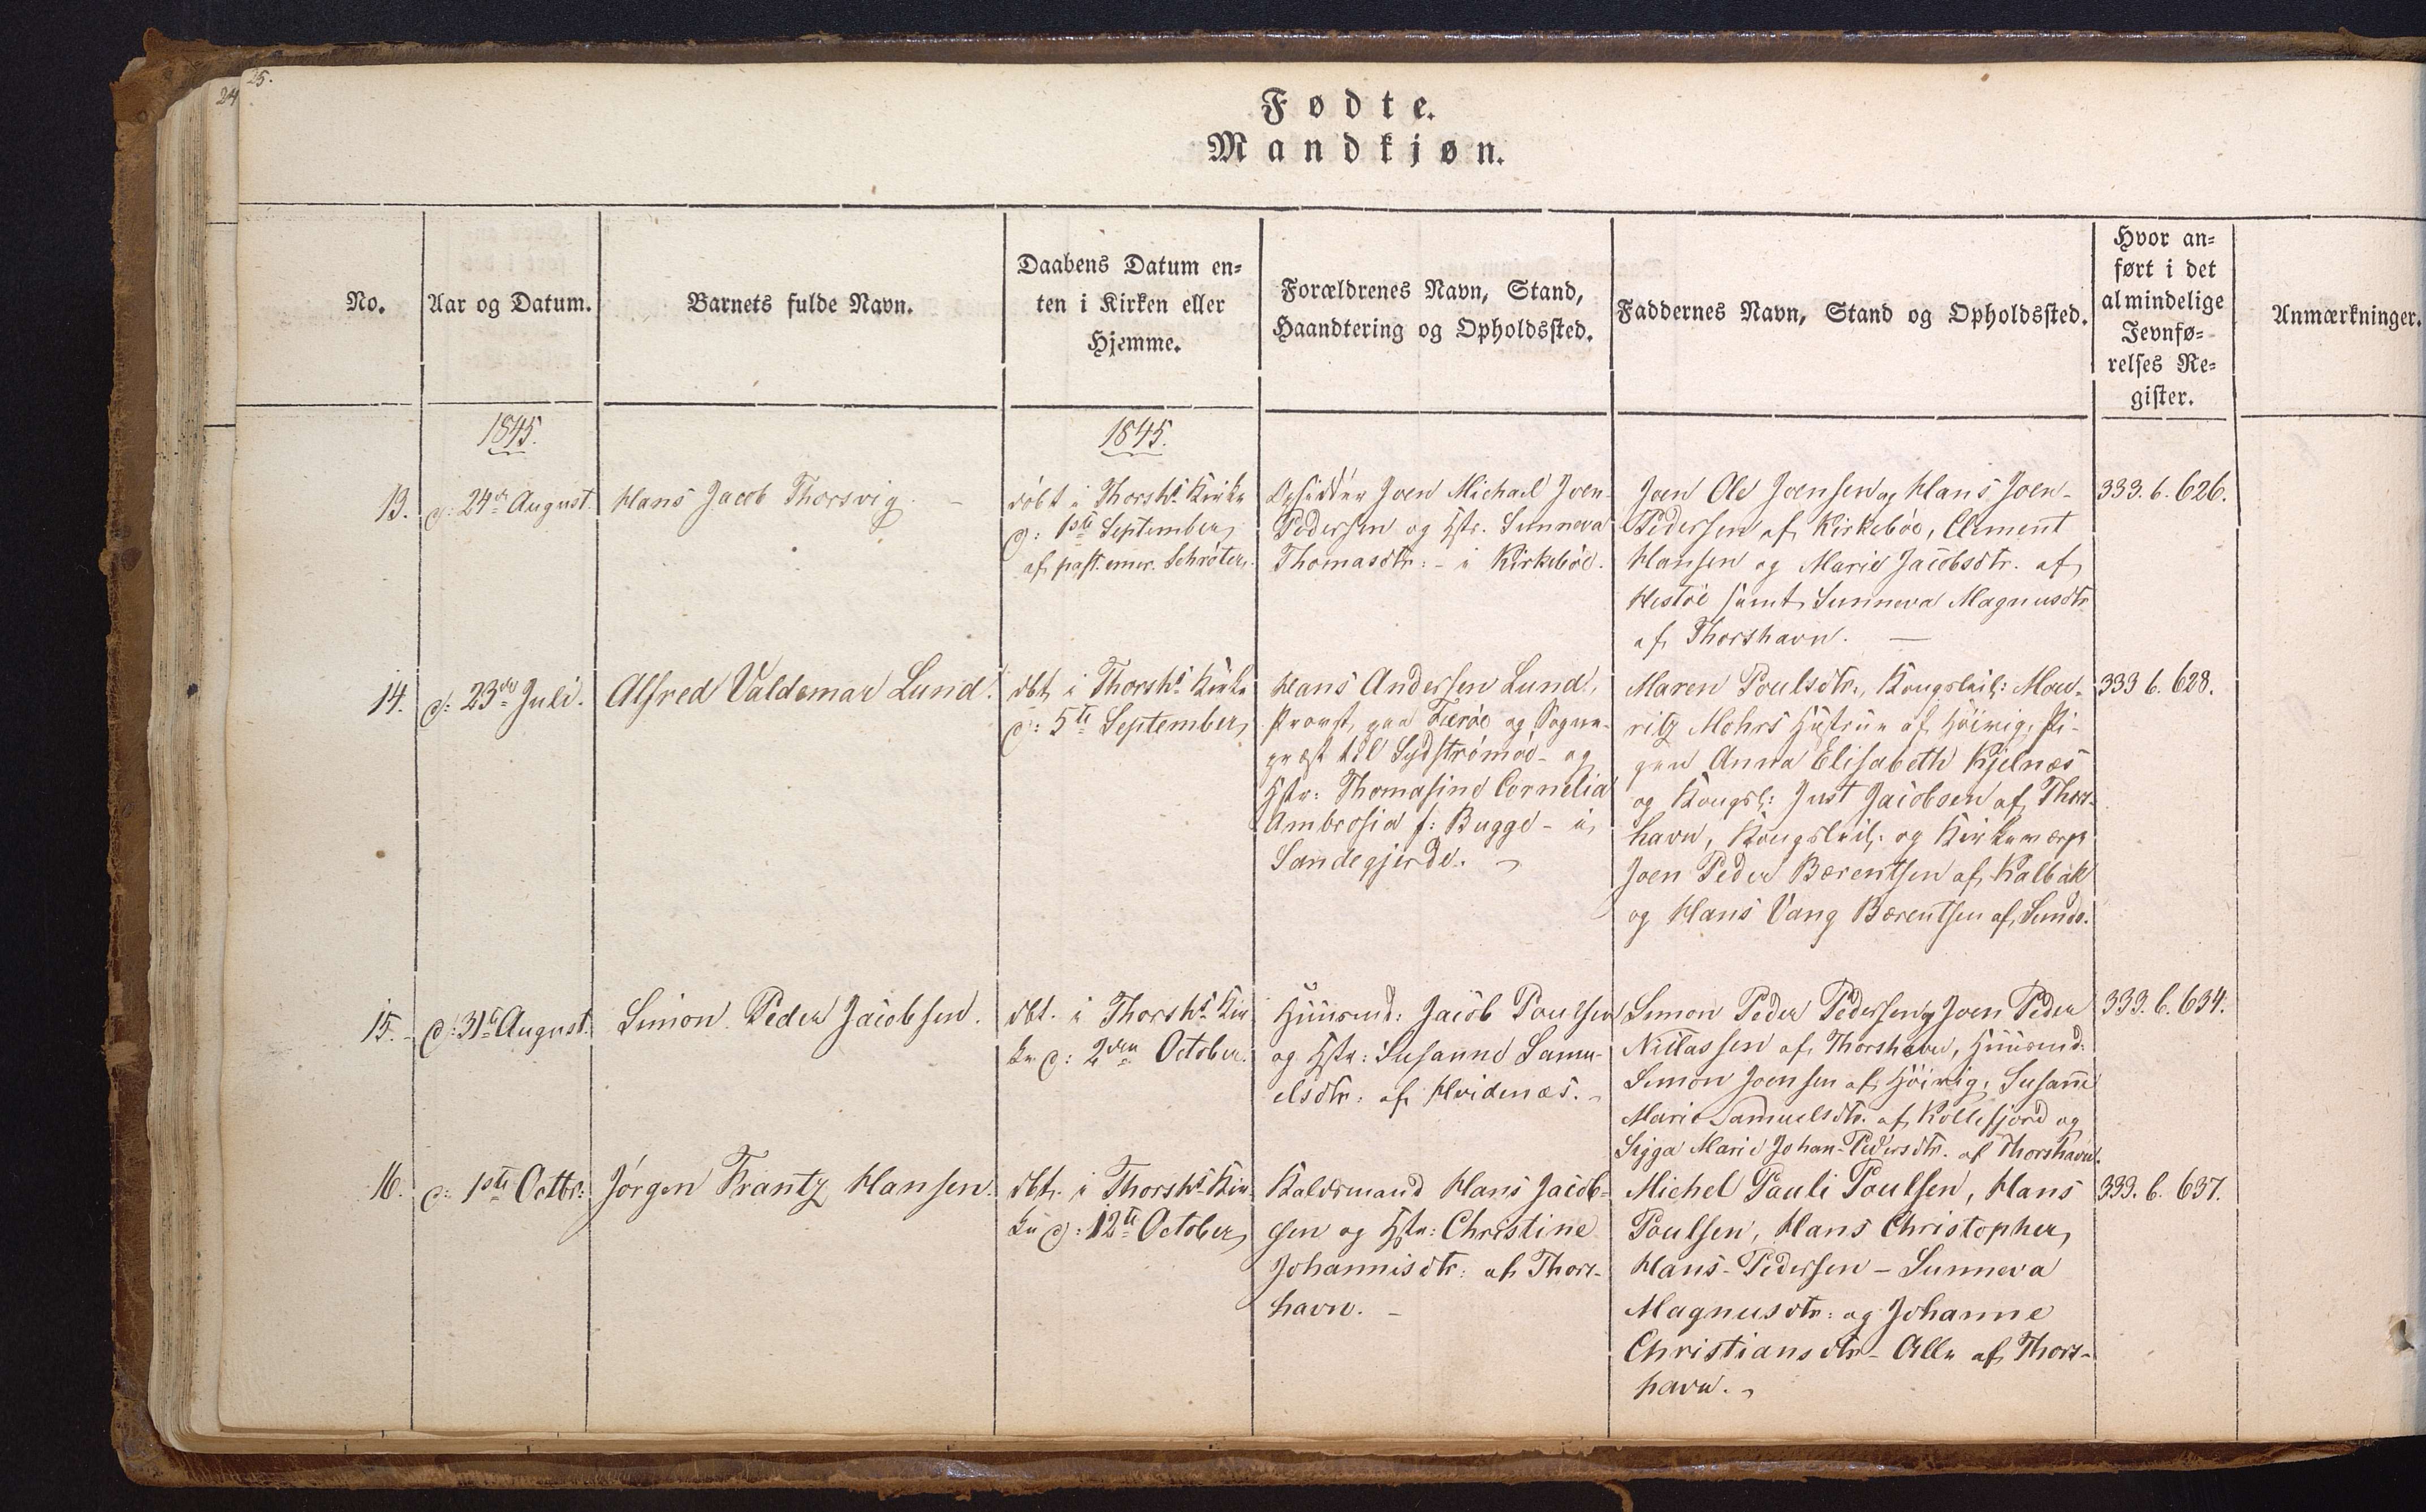 24
25.
Fødte.
Mandkjøn.
No.
Aar og Datum.
Barnets fulde Navn.
Daabens Datum en=
ten i Kirken eller
Hjemme.
Forældrenes Navn, Stand,
Haandtering og Opholdssted.
Faddernes Navn, Stand og Opholdssted.
Hvor an=
ført i det
almindelige
Jevnfø=
relses Re=
gister.
Anmærkninger.
1845.
1845.
13.
d: 24de August.
Hans Jacob Thorsvig. -
döbt i Thorshs Kirke
d: 1ste September
af past. emer. Schröter.
Opsidder Joen Michael Joen-
Pedersen og Hstr. Sunneva
Thomasdtr: - i Kirkeböe.
Joen Ole Joensen og Hans Joen-
Pedersen af Kirkeböe, Clement
Hansen og Marie Jacobsdtr. af
Hestöe samt Sunneva Magnusdtr
af Thorshavn. -
333. b. 626.
14.
d: 23de Juli.
Alfred Valdemar Lund.
dbt i Thorshs Kirke
d: 5te September,
Hans Andersen Lund,
Provst paa Færöe og Sogne-
præst til Sydströmöe - og
Hstr: Thomasine Cornelia
Ambrosia f: Bugge - i
Sandegjerde. -
Maren Poulsdtr., Kongsleil: Mou-
ritz Mohrs Hustrue af Höivig, Pi-
gen Anna Elisabeth Kjelnæs
og Kongsl: Just Jacobsen af Thors-
havn, Kongsleil: og Kirkeværge
Joen Peder Bærentsen af Kalbak
og Hans Vang Bærentsen af Sunde.
333 b. 628.
15. -
d: 31te August.
Simon Peder Jacobsen.
dbt. i Thorshs Kir
ke d: 2den October.
Huusmd: Jacob Poulsen
og Hstr: Susanne Samu-
elsdtr: af Hvidenæs. -
Simon Peder Pedersen og Joen Peder
Niclassen af Thorshavn, Huusmd:
Simon Joensen af Höivig, Susanne
Marie Samuelsdtr. af Kollefjord og
Sigga Marie Johan-Pedersdtr. af Thorshavn.
333. b. 634.
16.
d: 1ste Octbr:
Jörgen Frantz Hansen.
dbt. i Thorshs Kir-
ke d: 12te October,
Kaldsmand Hans Jacob-
sen og Hstr: Christine
Johannisdtr: af Thors-
havn. -
Michel Pauli Poulsen, Hans
Poulsen, Hans Christopher,
Hans-Pedersen - Sunneva
Magnusdtr: og Johanne
Christiansdtr - Alle af Thors-
havn. -
333. b. 637.